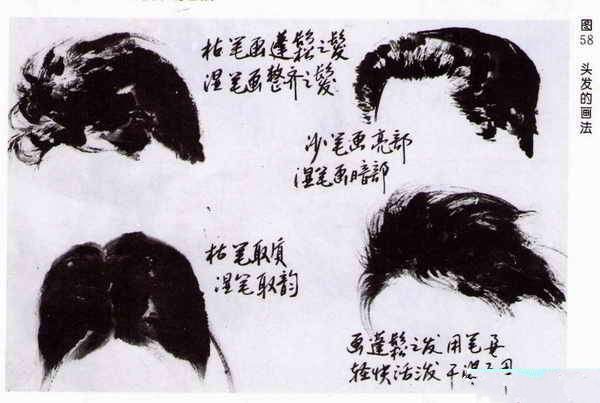 枯笔画蓬鬆之髮
湿笔画整齐之髮
沙笔画亮部
湿笔画暗部
枯笔取质
湿笔取韵
画蓬鬆之发用笔要
轻快活泼干湿
图58 头发的画法